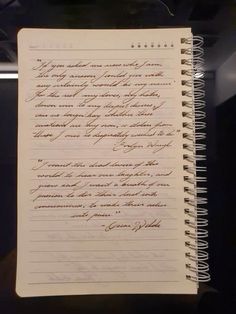 "If you asked me now who I am,
the only answer I could give with
any certainty would be my name.
For the rest: my loves, my hates,
down even to my deepest desires, I
can no longer say whether these
emotions are my own, or stolen from
those I once so desperately wished to be."
- Evelyn Waugh
"I want the dead lovers of the
world to hear our laughter, and
grow sad. I want a breath of our
passion to stir their dust into
consciousness, to wake their ashes
into pain."
- Oscar Wilde